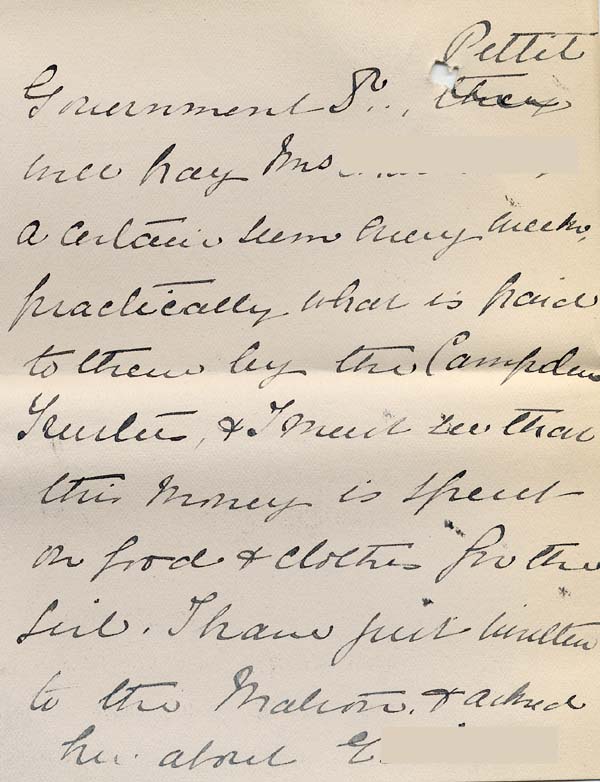 Pettit
Government St., they
will pay Mrs
a certain sum every week,
practically what is paid
to them by the Campden
Trustees, & I must see that
this money is spent
on food & clothes for the
girl. I have just written
to the Matron & asked
her about E.